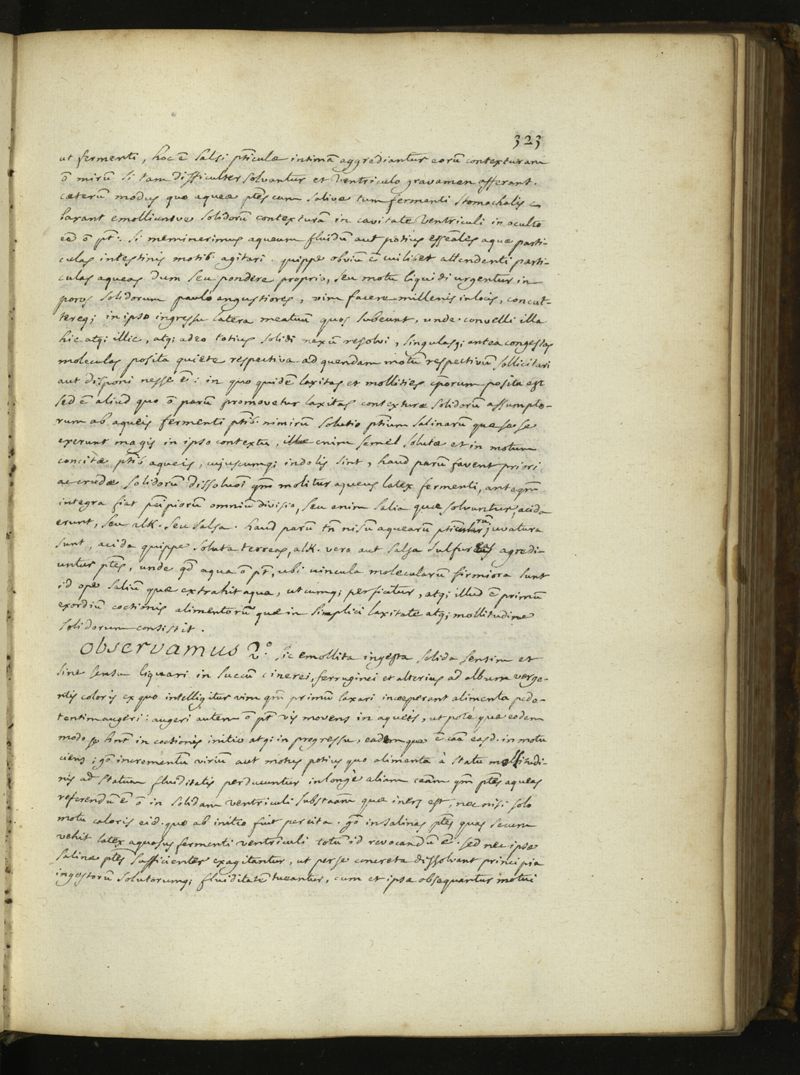 323
ut fermenti, hoc ē salsi pticulæ intimā aggrediantur eorū contexturam
ō mirū si tam difficulter solvantur et ventriculo gravamen offerant.
cæterum modus quo aqueæ ptes cum salivæ tum fermenti stomachalis
laxant emolliuntve solidorū contexturā in cavitate ventriculi in oculto
eē ō pt: si meminerimus aqueum fluidū aut potius essēales aquæ parti-
culas intestinis motib agitari. quippe obviū ē cuilibet attendenti parti-
culas aqueas dum seu pondere proprio, seu motu liquidi urgentur in
poros solidorum paulo angustiores, vim facere millenis in locis, concut-
tereq; in ipso ingressu latera meatuum quos subeunt, unde convelli illa
hic atq; illic, atq; adeo totius solidi nexū resolvi, singulasq; antea congestas
moleculas posita quiete respectiva ad quendam motū respectivū sollicitari
aut disponi necesse ē: in quo quidē laxitas et mollities cporum posita est
sed ē aliud quo ō parū promovetur laxitas contexturæ solidorū assumpto-
rum ab aqueis fermenti ptib. nimirū solutio ptium salinarū quæ se se
exerunt magis in ipso contextu, illæ enim semel solutæ et in motum
concitæ ptib aqueis, cujuscumq; indolis sint, haud parū favent priori
ac crudæ solidorū dissolnoi qm molitur aqueus latex fermenti, anteqm
integra fiat pcipiorū omniū divisio, seu enim salia quæ solvuntur acida
erunt, seu alk. seu salsa. haud parū tn nisū aquearū pticularū juvatura
sunt, acida quippe soluta terreas, alk. vero aut salsa sulfureas agredi-
untur ptes, unde qd aqua ō pt, ubi vincula molecularū firmiora sunt
id ope saliū quæ extrahit aqua, utcumq; perficitur, atq; illud ē primū
exordiū coctionis alimentorū quæ in simplici laxitate atq; mollitudine
solidorum consistit.
Observamus 2°. sic emollita ingesta solida sensim et
sine sensu liquari in succū cinerei, ferruginei et alterius ad album verge-
ntis coloris ex quo intelligitur vim qm primū laxari incœperant alimenta pede-
tentim augeri: augeri autem ō pt vis movens in aqueis, ut pote quæ eodem
modo se hnt in coctionis initio atq; in progressu, eademque ē caā easd. in motu
ciens; go incrementū virium aut motus potius quo alimenta à statu mollitudi-
nis ad statum fluiditatis perducuntur in longè aliam caām qm ptes aqueas
referendū ē ō in solidam ventriculi substaām quæ iners est, nec nisi solo
motu caloris eid. quæ ab initio fuit percita. go in salinas ptes quas secum
vehit latex aquosus fermenti ventriculi totū id revocandū ē. sed nec ipsæ
salinæ ptes sufficienter exagitantur, ut per se concreta dissolvant principia
ingestorū solutorumq; fluiditatē tueantur, cum et ipsæ obsequantur motui